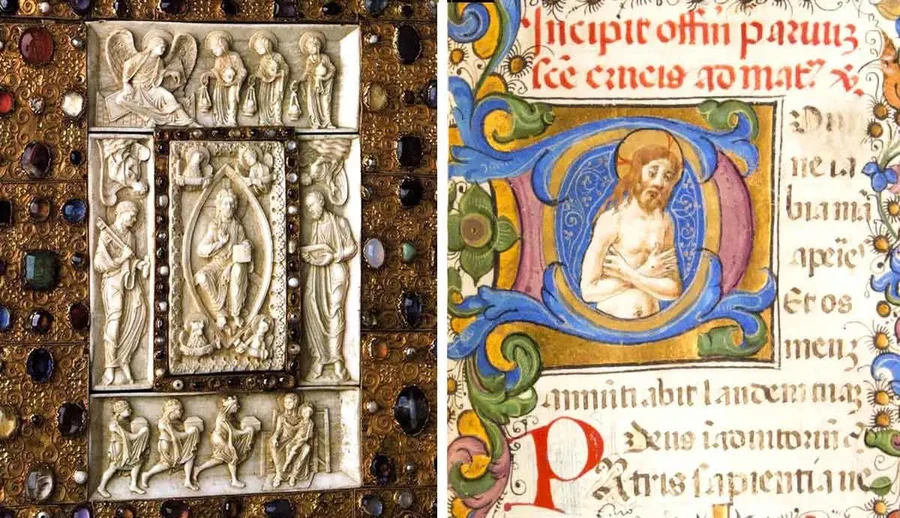 Incipit offiñ paruuz
sce crucis ad mat᷒
ne la
bia mã
Et os
meuz
annũtiabit laudem tuaz
Deus ĩ adiutoriũ
Patris sapientia ue